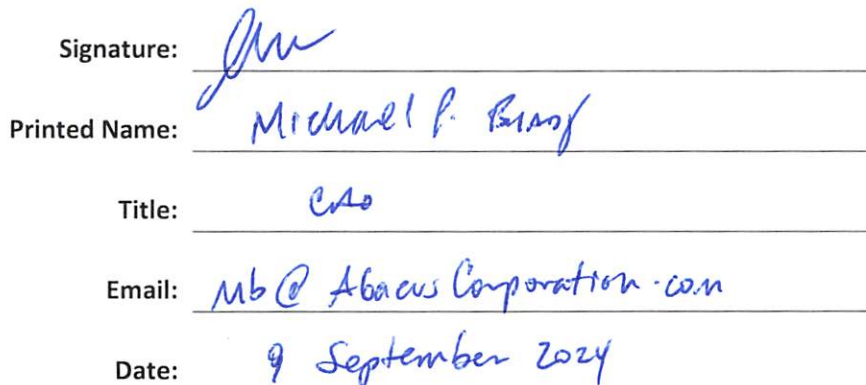 Signature:
Printed Name: Michael P.
Title: CAO
Email: Mb@AbacusCorporation.com
Date: 9 September 2024